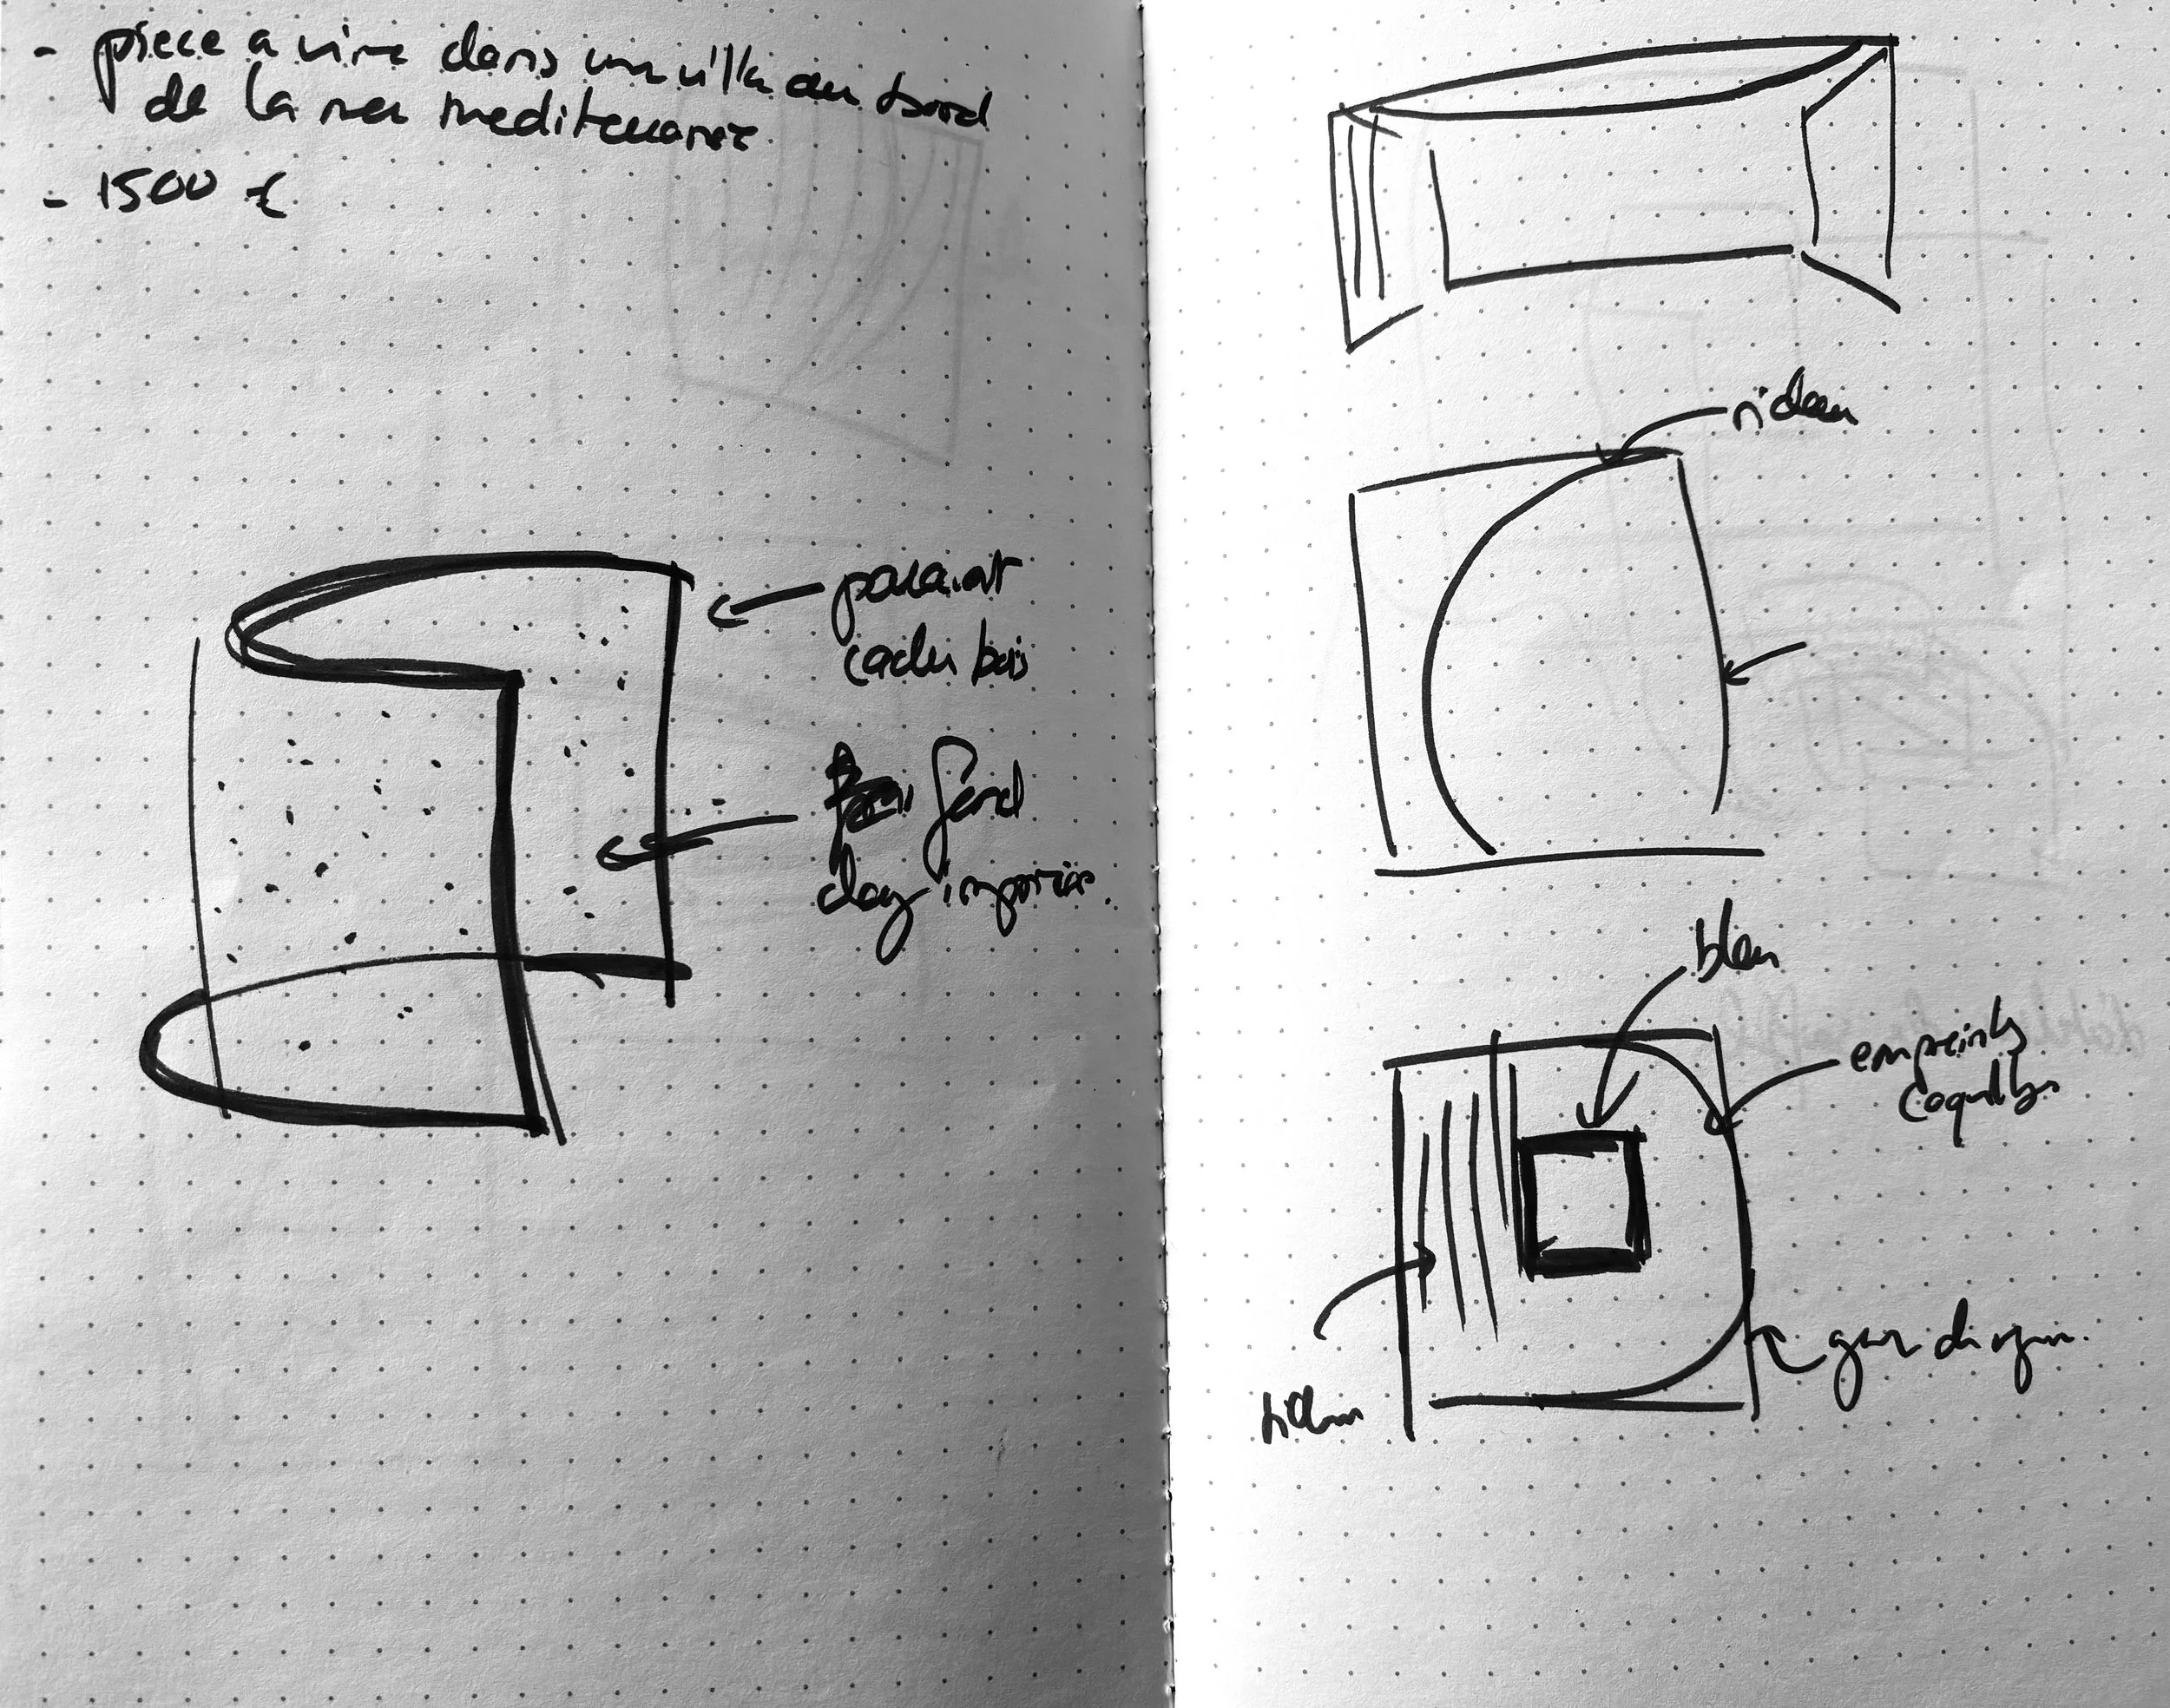 - piece a vivre dans une villa au bord
de la mer mediteranée
- 1500 €
paravent
cadre bois
fond
clay imprimé.
rideau
bleu
empreintes
coquillages
rideau